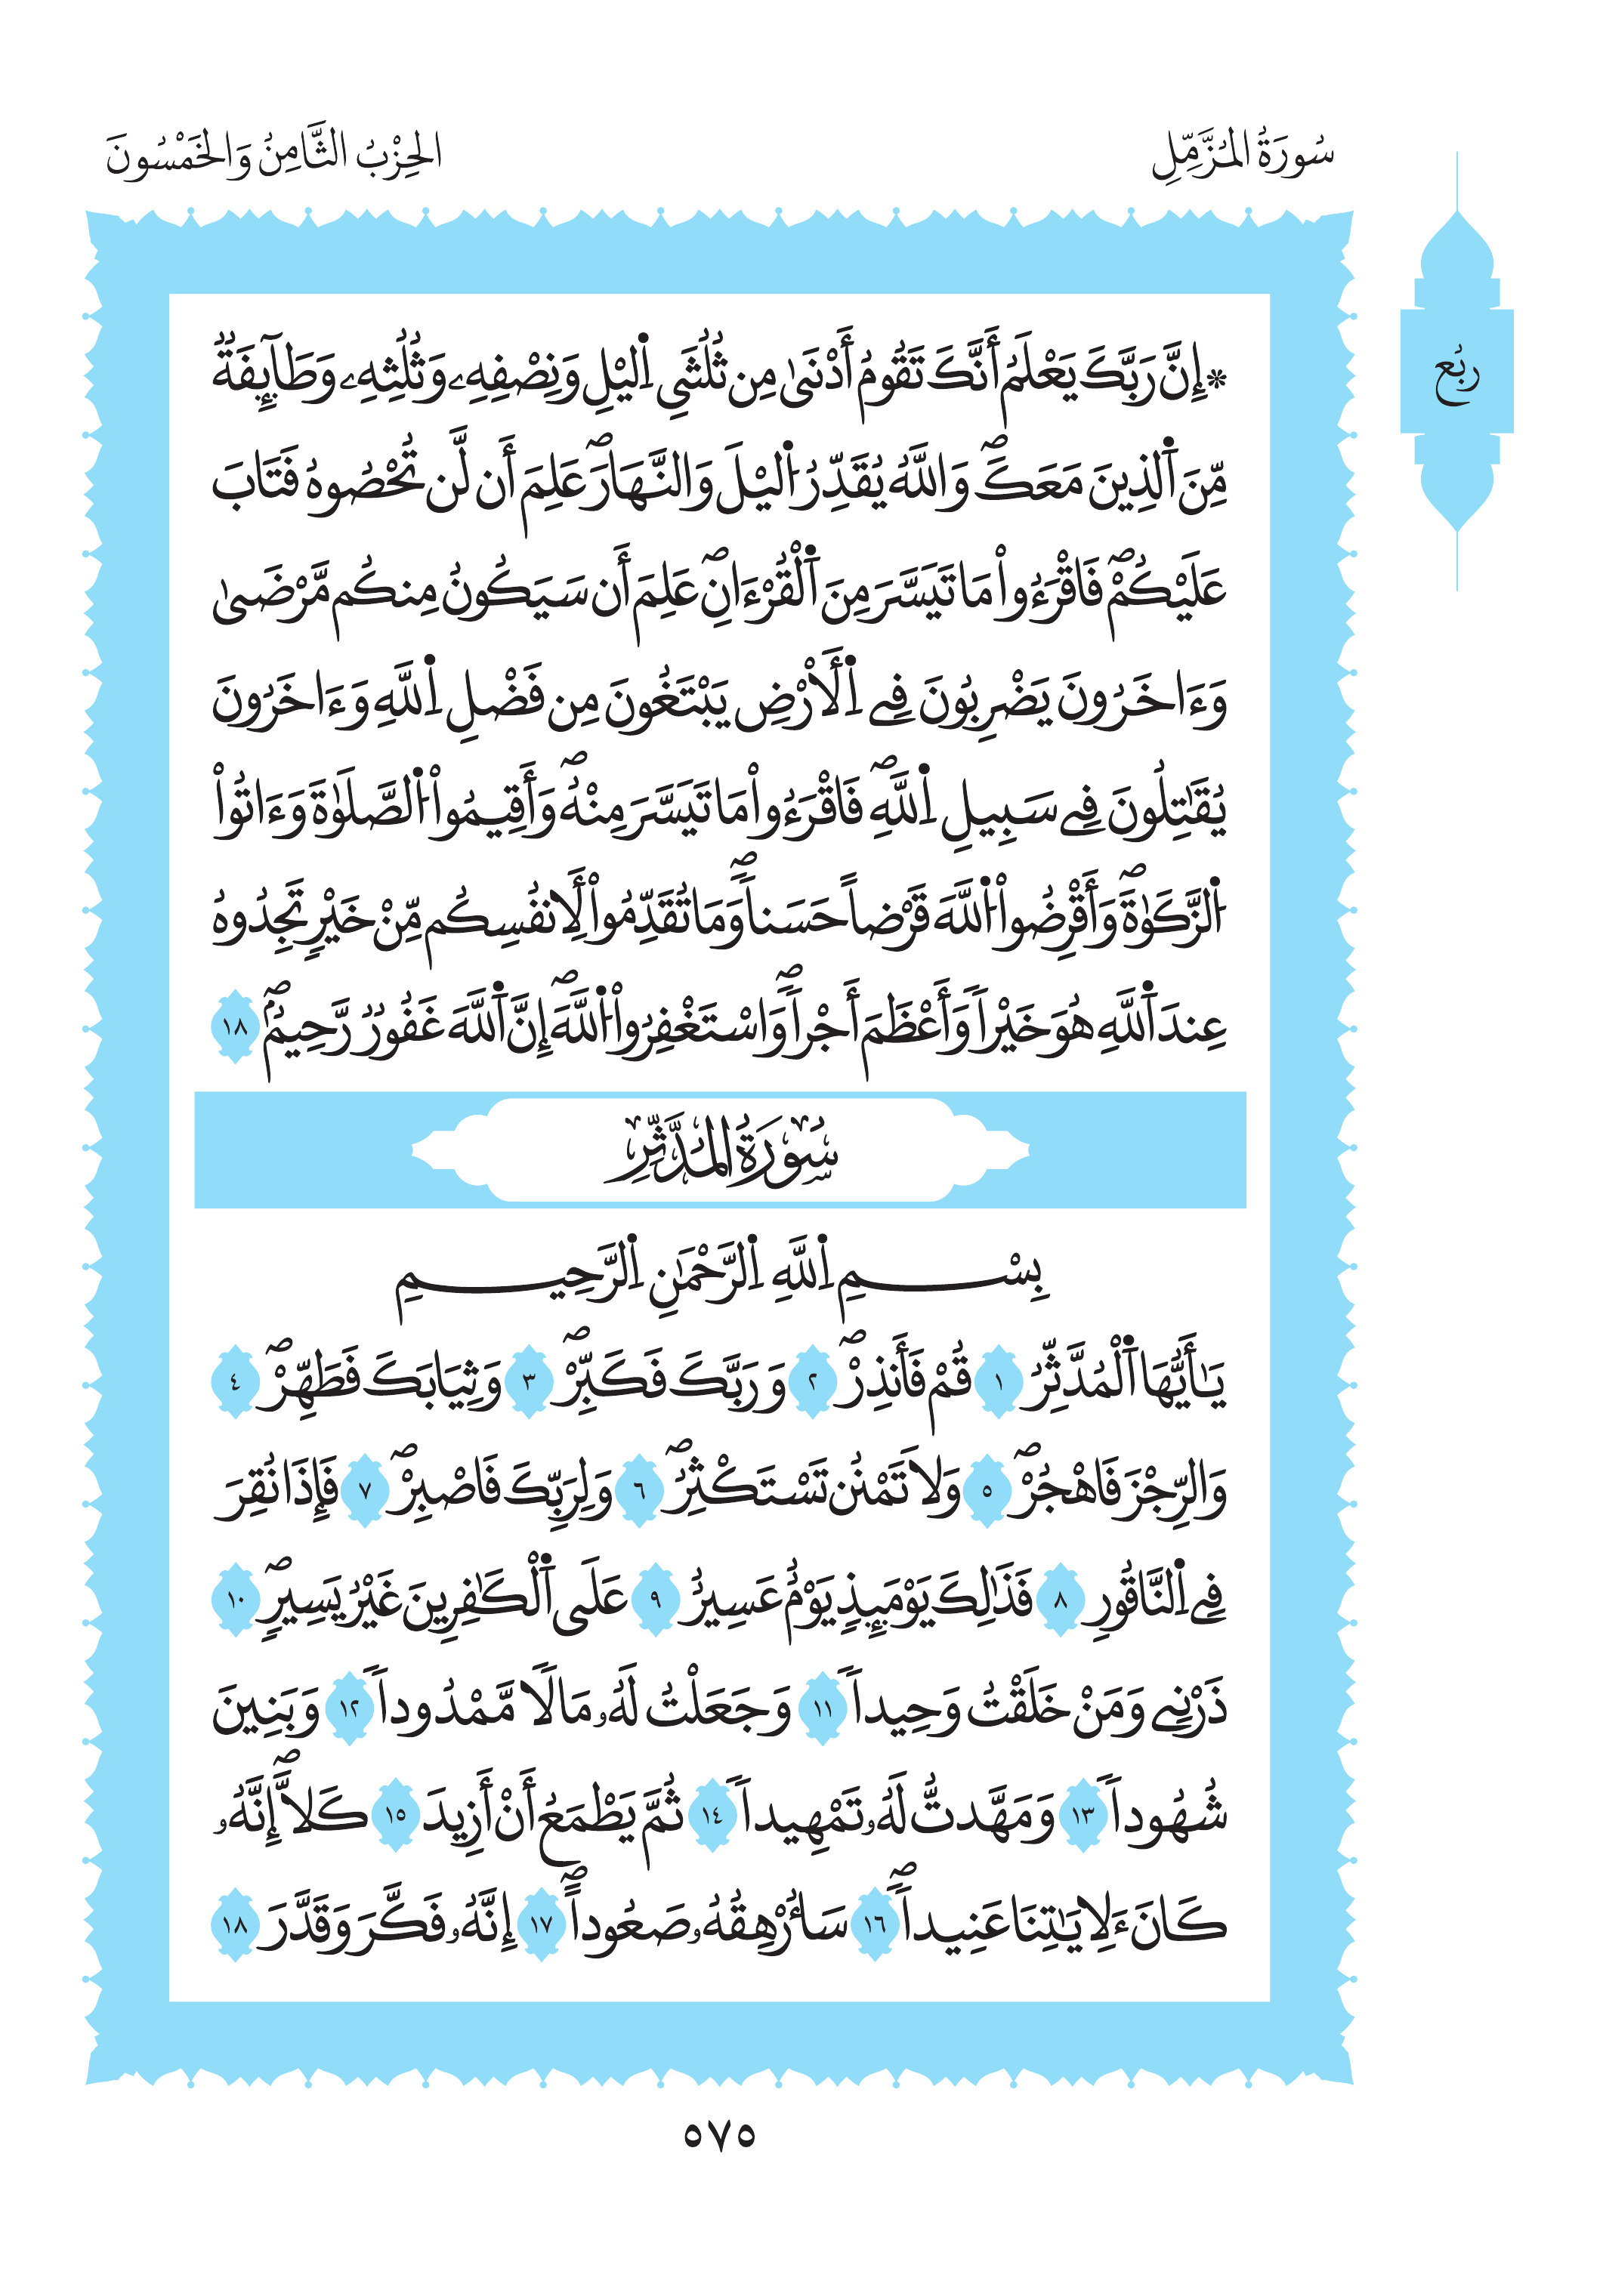 سُورَةُ الْمُزَّمِّلِ
الحِزْبُ الثَّامِنُ وَالخَمْسُونَ
رُبُع
* إِنَّ رَبَّكَ يَعْلَمُ أَنَّكَ تَقُومُ أَدْنَىٰ مِن ثُلُثَيِ اِ۬ليْلِ وَنِصْفِهِۦ وَثُلُثِهِۦ وَطَآئِفَةٞ
مِّنَ اَ۬لذِينَ مَعَكَۖ وَاللَّهُ يُقَدِّرُ اُ۬ليْلَ وَالنَّهَارَۖ عَلِمَ أَن لَّن تُحْصُوهُ فَتَابَ
عَلَيْكُمْۖ فَاقْرَءُواْ مَا تَيَسَّرَ مِنَ اَ۬لْقُرْءَانِۖ عَلِمَ أَن سَيَكُونُ مِنكُم مَّرْضَىٰ
وَءَاخَرُونَ يَضْرِبُونَ فِے اِ۬لَارْضِ يَبْتَغُونَ مِن فَضْلِ اِ۬للَّهِ وَءَاخَرُونَ
يُقَٰتِلُونَ فِے سَبِيلِ اِ۬للَّهِۖ فَاقْرَءُواْ مَا تَيَسَّرَ مِنْهُۖ وَأَقِيمُواْ اُ۬لصَّلَوٰةَ وَءَاتُواْ
اُ۬لزَّكَوٰةَۖ وَأَقْرِضُواْ اُ۬للَّهَ قَرْضاً حَسَناٗۖ وَمَا تُقَدِّمُواْ لِأَنفُسِكُم مِّنْ خَيْرٖ تَجِدُوهُ
عِندَ اَ۬للَّهِ هُوَ خَيْراٗ وَأَعْظَمَ أَجْراٗۖ وَاسْتَغْفِرُواْ اُ۬للَّهَۖ إِنَّ اَ۬للَّهَ غَفُورٞ رَّحِيمٞۖ ١٨
سُورَةُ الْمُدَّثِّرِ
بِسْمِ اِ۬للَّهِ اِ۬لرَّحْمَٰنِ اِ۬لرَّحِيمِ
يَٰأَيُّهَا اَ۬لْمُدَّثِّرُ ١ قُمْ فَأَنذِرْۖ ٢ وَرَبَّكَ فَكَبِّرْۖ ٣ وَثِيَابَكَ فَطَهِّرْۖ ٤
وَالرِّجْزَ فَاهْجُرْۖ ٥ وَلَا تَمْنُن تَسْتَكْثِرُۖ ٦ وَلِرَبِّكَ فَاصْبِرْۖ ٧ فَإِذَا نُقِرَ
فِے اِ۬لنَّاقُورِ ٨ فَذَٰلِكَ يَوْمَئِذٖ يَوْمٌ عَسِيرٌ ٩ عَلَى اَ۬لْكَٰفِرِينَ غَيْرُ يَسِيرٖۖ ١٠
ذَرْنِے وَمَنْ خَلَقْتُ وَحِيداٗ ١١ وَجَعَلْتُ لَهُۥ مَالاٗ مَّمْدُوداٗ ١٢ وَبَنِينَ
شُهُوداٗ ١٣ وَمَهَّدتُّ لَهُۥ تَمْهِيداٗ ١٤ ثُمَّ يَطْمَعُ أَنْ أَزِيدَ ١٥ كَلَّاۖ إِنَّهُۥ
كَانَ ءَلِايَٰتِنَا عَنِيداٗۖ ١٦ سَأُرْهِقُهُۥ صَعُوداًۖ ١٧ إِنَّهُۥ فَكَّرَ وَقَدَّرَ ١٨
٥٧٥